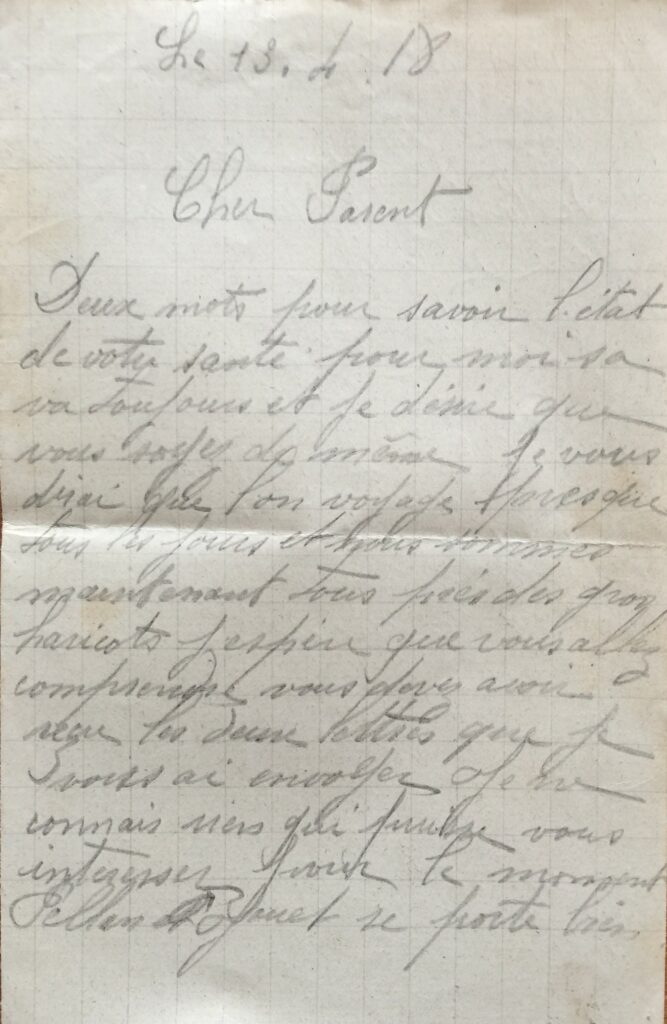 Le 13. 4. 18
Cher Parent
Deux mots pour savoir l'état
de votre santé pour moi sa
va toujours et je désire que
vous soyez de même Je vous
dirai que l'on voyage presque
tous les jours et nous sommes
maintenant tous près des gros
haricots j'espère que vous allez
comprendre vous devez avoir
reçu les deux lettres que je
vous ai envoyer Je ne
connais rien qui puisse vous
interesser pour le moment
se porte bien